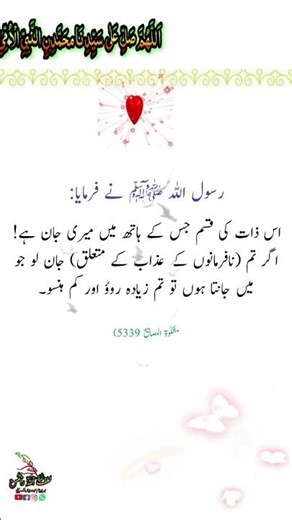 اَللّٰهُمَّ صَلِّ عَلٰى سَيِّدِنَا مُحَمَّدِنِ النَّبِيِّ الْاُمِّيِّ
رسول اللہ ﷺ نے فرمایا:
اس ذات کی قسم جس کے ہاتھ میں میری جان ہے!
اگر تم (نافرمانوں کے عذاب کے متعلق) جان لو جو
میں جانتا ہوں تو تم زیادہ روؤ اور کم ہنسو۔
مشکوٰۃ المصابیح 5339)